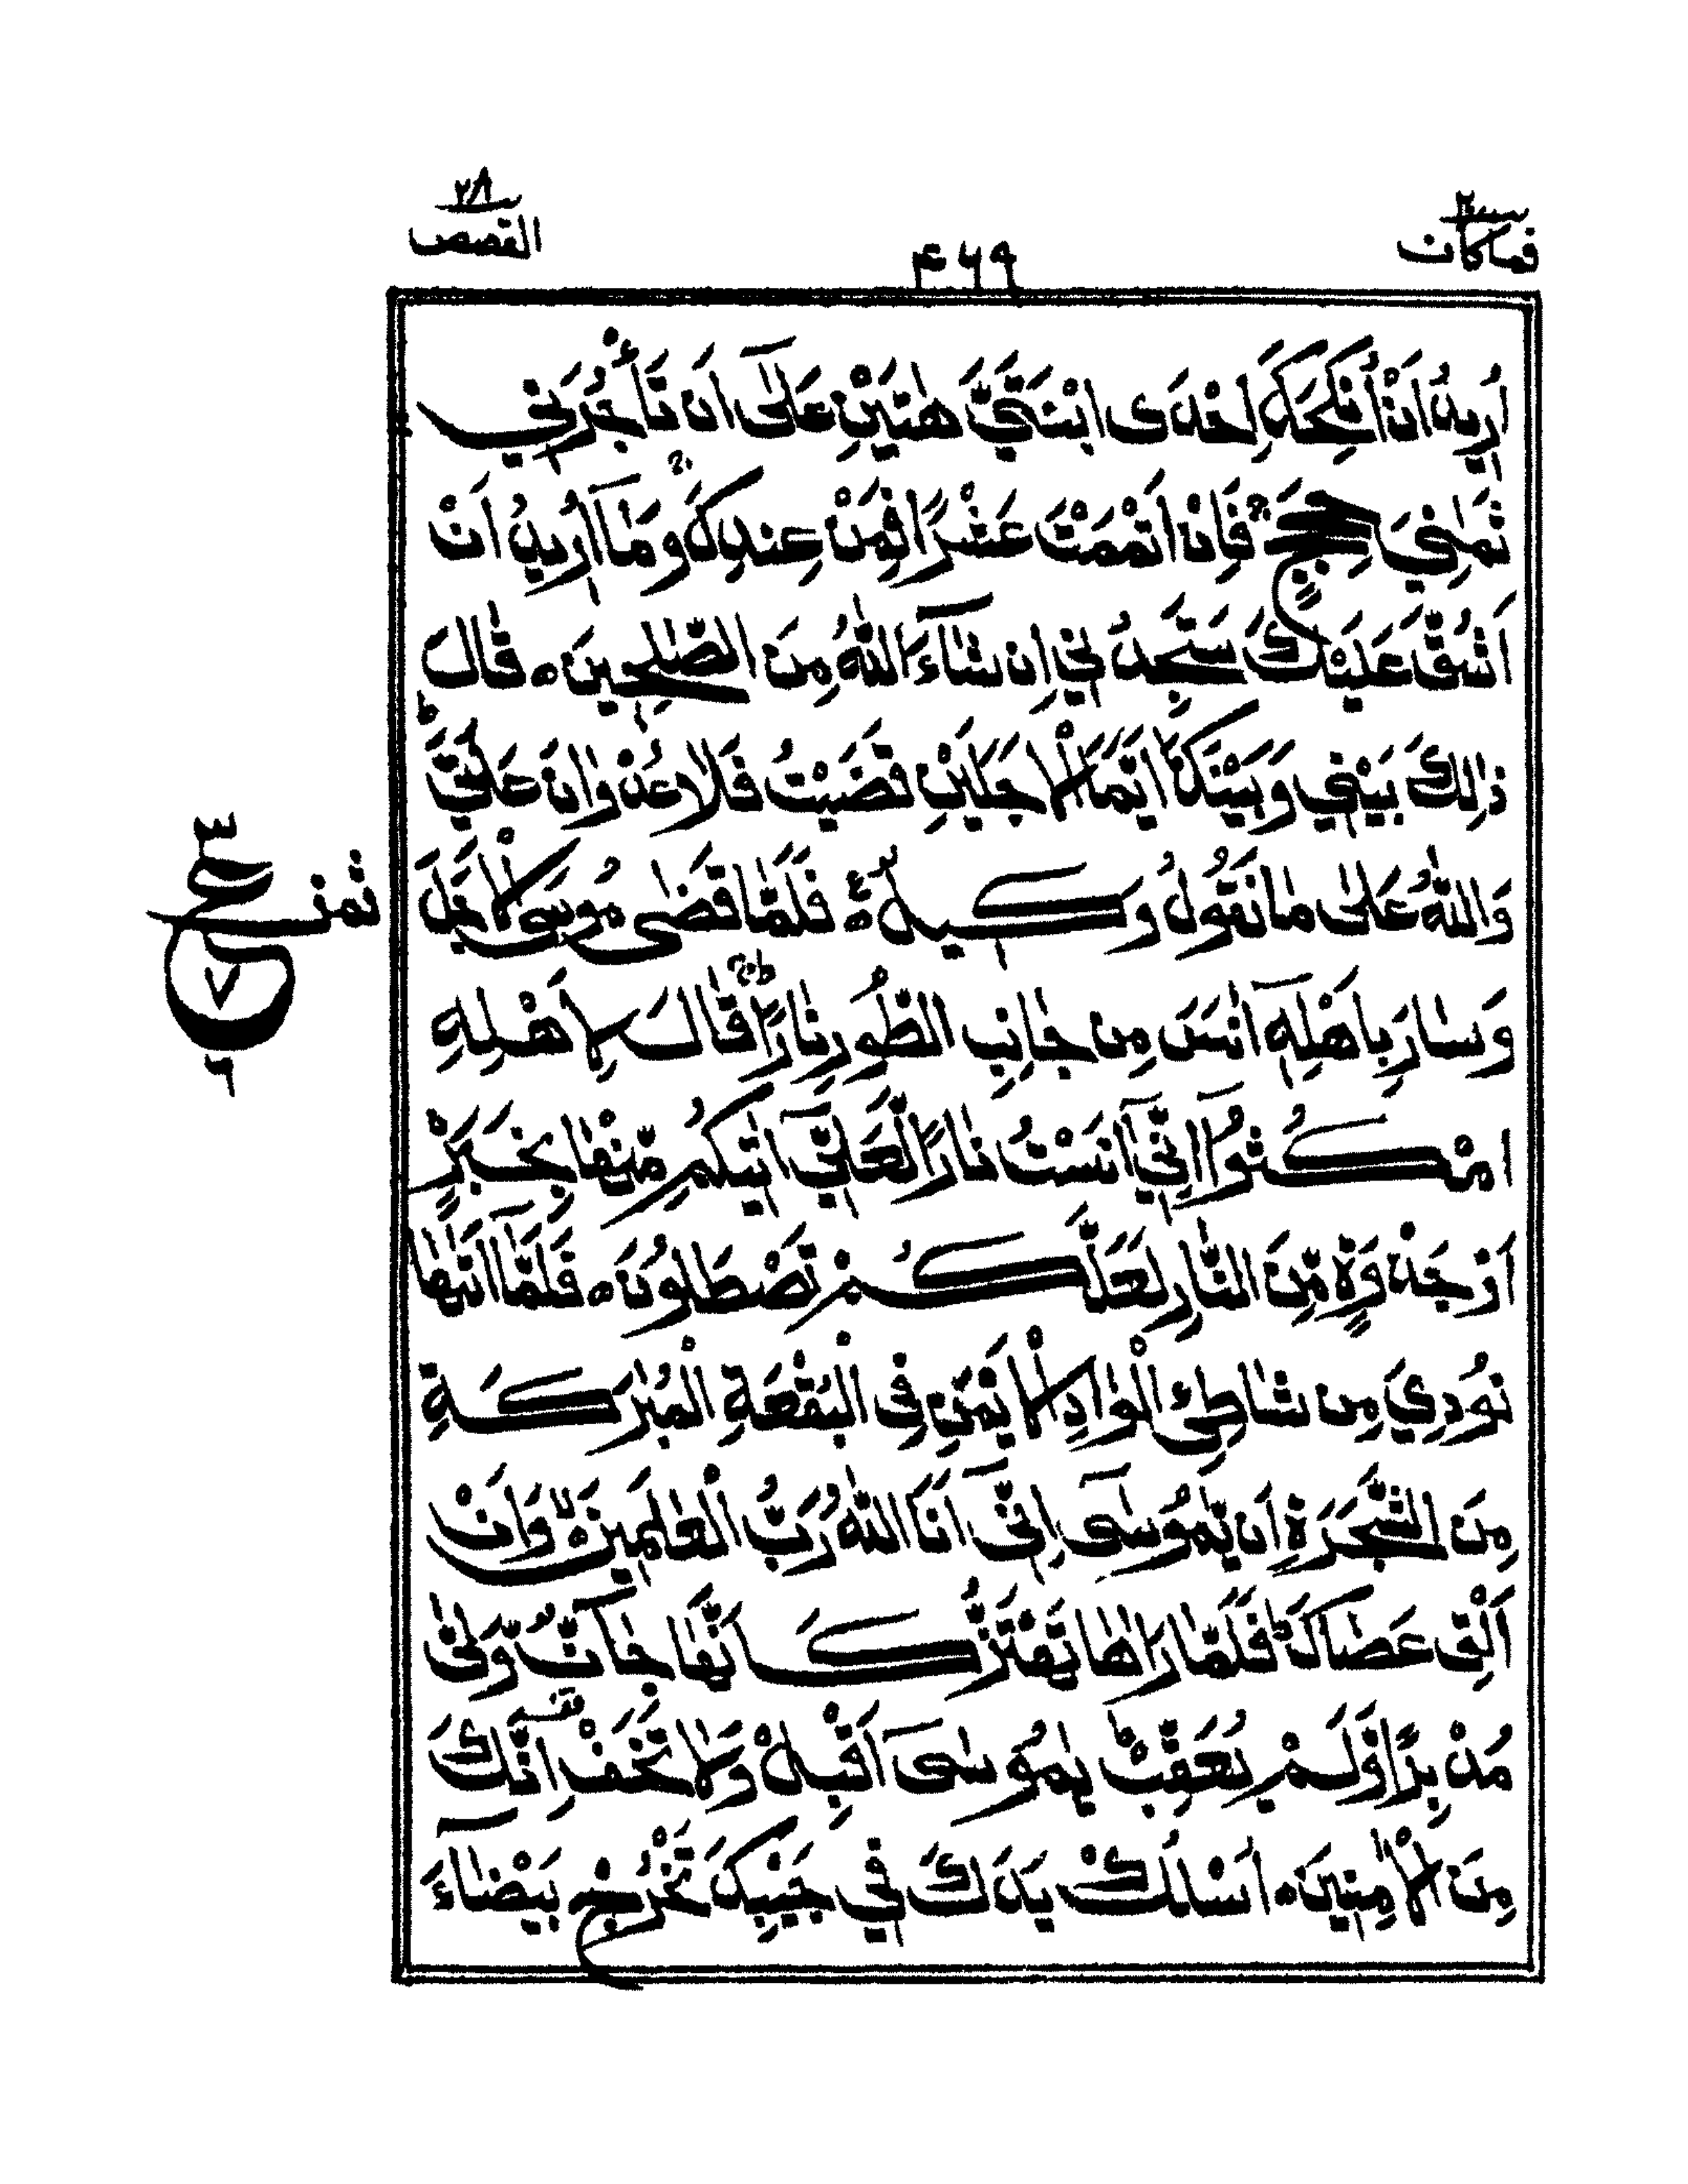 ٢٠
فماكان
٤٦٩
٢٨
القصص
اُرِيدُ اَنْ اُنْكِحَكَ اِحْدَى ابْنَتَيَّ هٰتَيْنِ عَلٰٓى اَن تَأْجُرَنِي
ثَمٰنِيَ حِجَجٍ ۚ فَاِنْ اَتْمَمْتَ عَشْرًا فَمِنْ عِندِكَ ۚ وَمَآ اُرِيدُ اَنْ
اَشُقَّ عَلَيْكَ ؕ سَتَجِدُنِي اِن شَآءَ اللّٰهُ مِنَ الصّٰلِحِينَ ۝ قَالَ
ذٰلِكَ بَيْنِي وَبَيْنَكَ ؕ اَيَّمَا الْاَجَلَيْنِ قَضَيْتُ فَلَا عُدْوٰنَ عَلَيَّ ؕ
وَاللّٰهُ عَلٰى مَا نَقُولُ وَكِيلٌ ۝ فَلَمَّا قَضٰى مُوسَى الْاَجَلَ
وَسَارَ بِاَهْلِهٖٓ اٰنَسَ مِن جَانِبِ الطُّورِ نَارًا ۚ قَالَ لِاَهْلِهِ
امْكُثُوٓا اِنِّيٓ اٰنَسْتُ نَارًا لَّعَلِّيٓ اٰتِيكُم مِّنْهَا بِخَبَرٍ
اَوْ جَذْوَةٍ مِّنَ النَّارِ لَعَلَّكُمْ تَصْطَلُونَ ۝ فَلَمَّآ اَتٰىهَا
نُودِيَ مِن شَاطِئِ الْوَادِ الْاَيْمَنِ فِى الْبُقْعَةِ الْمُبٰرَكَةِ
مِنَ الشَّجَرَةِ اَن يّٰمُوسٰٓى اِنِّيٓ اَنَا اللّٰهُ رَبُّ الْعٰلَمِينَ ۝ وَاَنْ
اَلْقِ عَصَاكَ ؕ فَلَمَّا رَاٰهَا تَهْتَزُّ كَاَنَّهَا جَآنٌّ وَّلّٰى
مُدْبِرًا وَّلَمْ يُعَقِّبْ ؕ يٰمُوسٰٓى اَقْبِلْ وَلَا تَخَفْ اِنَّكَ
مِنَ الْاٰمِنِينَ ۝ اُسْلُكْ يَدَكَ فِي جَيْبِكَ تَخْرُجْ بَيْضَآءَ
ثمن
٣
ع
٧
٦